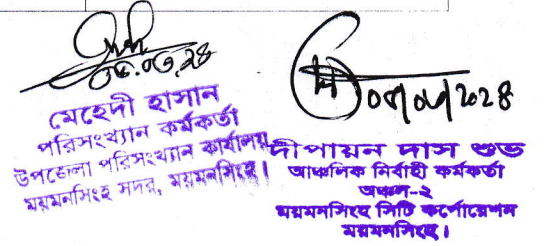 মেহেদী হাসান
পরিসংখ্যান কর্মকর্তা
উপজেলা পরিসংখ্যান কার্যালয়
ময়মনসিংহ সদর, ময়মনসিংহ।
দীপায়ন দাস শুভ
আঞ্চলিক নির্বাহী কর্মকর্তা
অঞ্চল-২
ময়মনসিংহ সিটি কর্পোরেশন
ময়মনসিংহ।